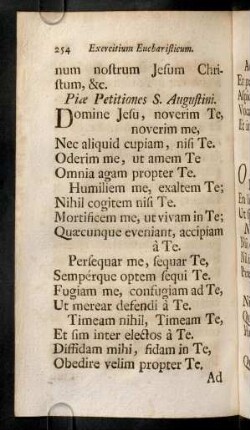 254 Exercitium Eucharisticum.
num nostrum Jesum Chri-
stum, &c.
Piæ Petitiones S. Augustini.
Domine Jesu, noverim Te,
noverim me,
Nec aliquid cupiam, nisi Te.
Oderim me, ut amem Te
Omnia agam propter Te.
Humiliem me, exaltem Te;
Nihil cogitem nisi Te.
Mortificem me, ut vivam in Te;
Quæcunque eveniant, accipiam
à Te.
Persequar me, sequar Te,
Sempérque optem sequi Te.
Fugiam me, confugiam ad Te,
Ut merear defendi à Te.
Timeam nihil, Timeam Te,
Et sim inter electos à Te.
Diffidam mihi, fidam in Te,
Obedire velim propter Te.
Ad